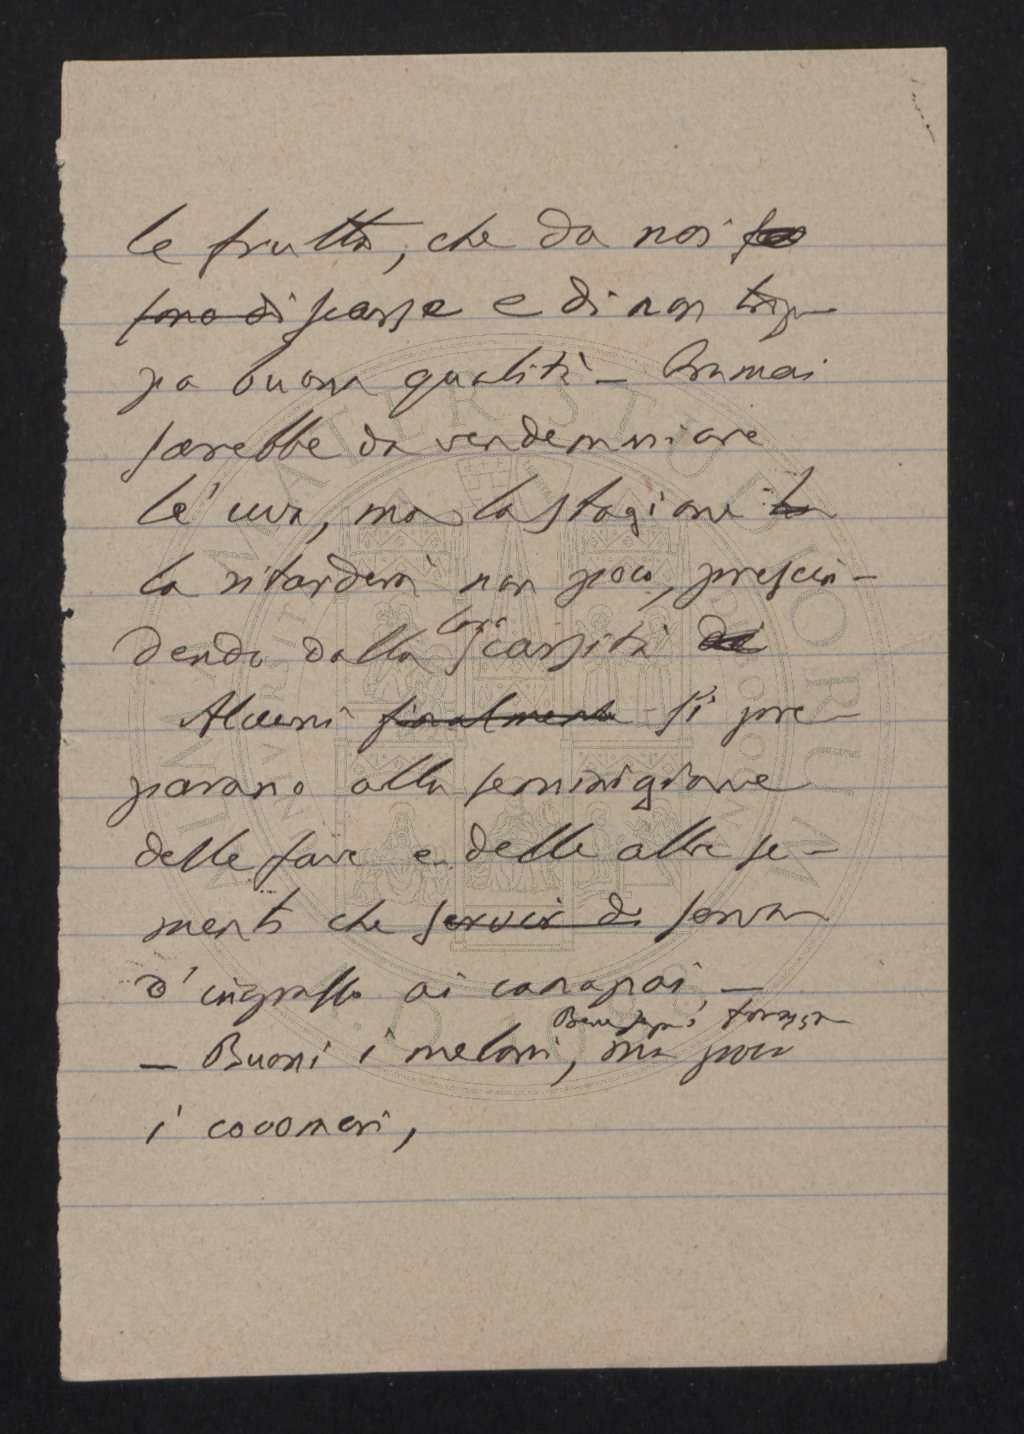 le frutta, che da noi
sono di scarse e di non trop-
pa buona qualità - Oramai
sarebbe da vendemmiare
le' uva, ma la stagione la
la ritarderà non poco, prescin-
dendo dalla loro scarsità di
Alcuni finalmente si pre-
parano alla seminigione
delle fave e delle altre se-
menti che servir di
d'ingrasso ai canapai -
- Buoni i meloni, ma poco
i cocomeri,
ALMA MATER STUDIORUM